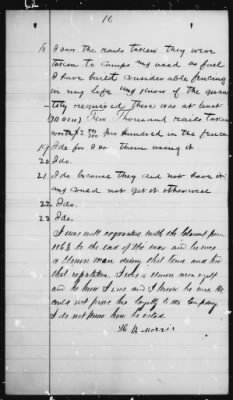 16
18 I saw the rails taken they were
taken to camps and used as fuel
I have built considerable fencing
in my life and know of the quan
tity required there was at least
(10,000) Ten Thousand rails taken
worth $2 per hundred in the fence
19 I do for I saw them using it
20 I do.
21 I do because they did not have
and could not get it otherwise
22 I do.
23 I do.
I was well acquainted with the Claimant from
1863 to the end of the war and he was
a Union man during that time and had
that reputation. I was a Union man myself
and he knew I was and I know he was. He
could not prove his loyalty to the Company
I do not know how he voted.
Morris